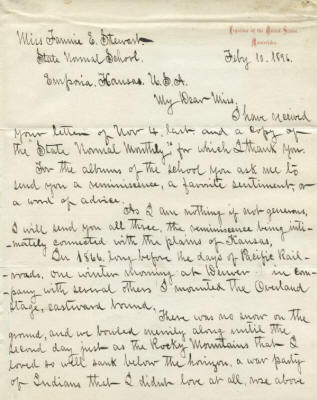 Legation of the United States
Montevideo
Miss Fannie E. Stewart.
State Normal School.
Feby 10. 1896.
Emporia, Kansas. U.S.A.
My Dear Miss,
I have received
your letter of Nov 4. last and a copy of
the "State Normal Monthly" for which I thank you.
For the albums of the school you ask me to
send you a reminiscence, a favorite sentiment, or
a word of advice.
As I am nothing if not generous,
I will send you all three, the reminiscence being inti-
mately connected with the plains of Kansas,
In 1866, long before the days of Pacific Rail-
roads, one winter morning at Denver in com-
pany with several others I mounted the Overland
Stage, eastward bound,
There was no snow on the
ground, and we bowled merrily along until the
second day just as the Rocky Mountains that I
loved so well sank below the horizon, a war party
of Indians that I didnt love at all, rose above